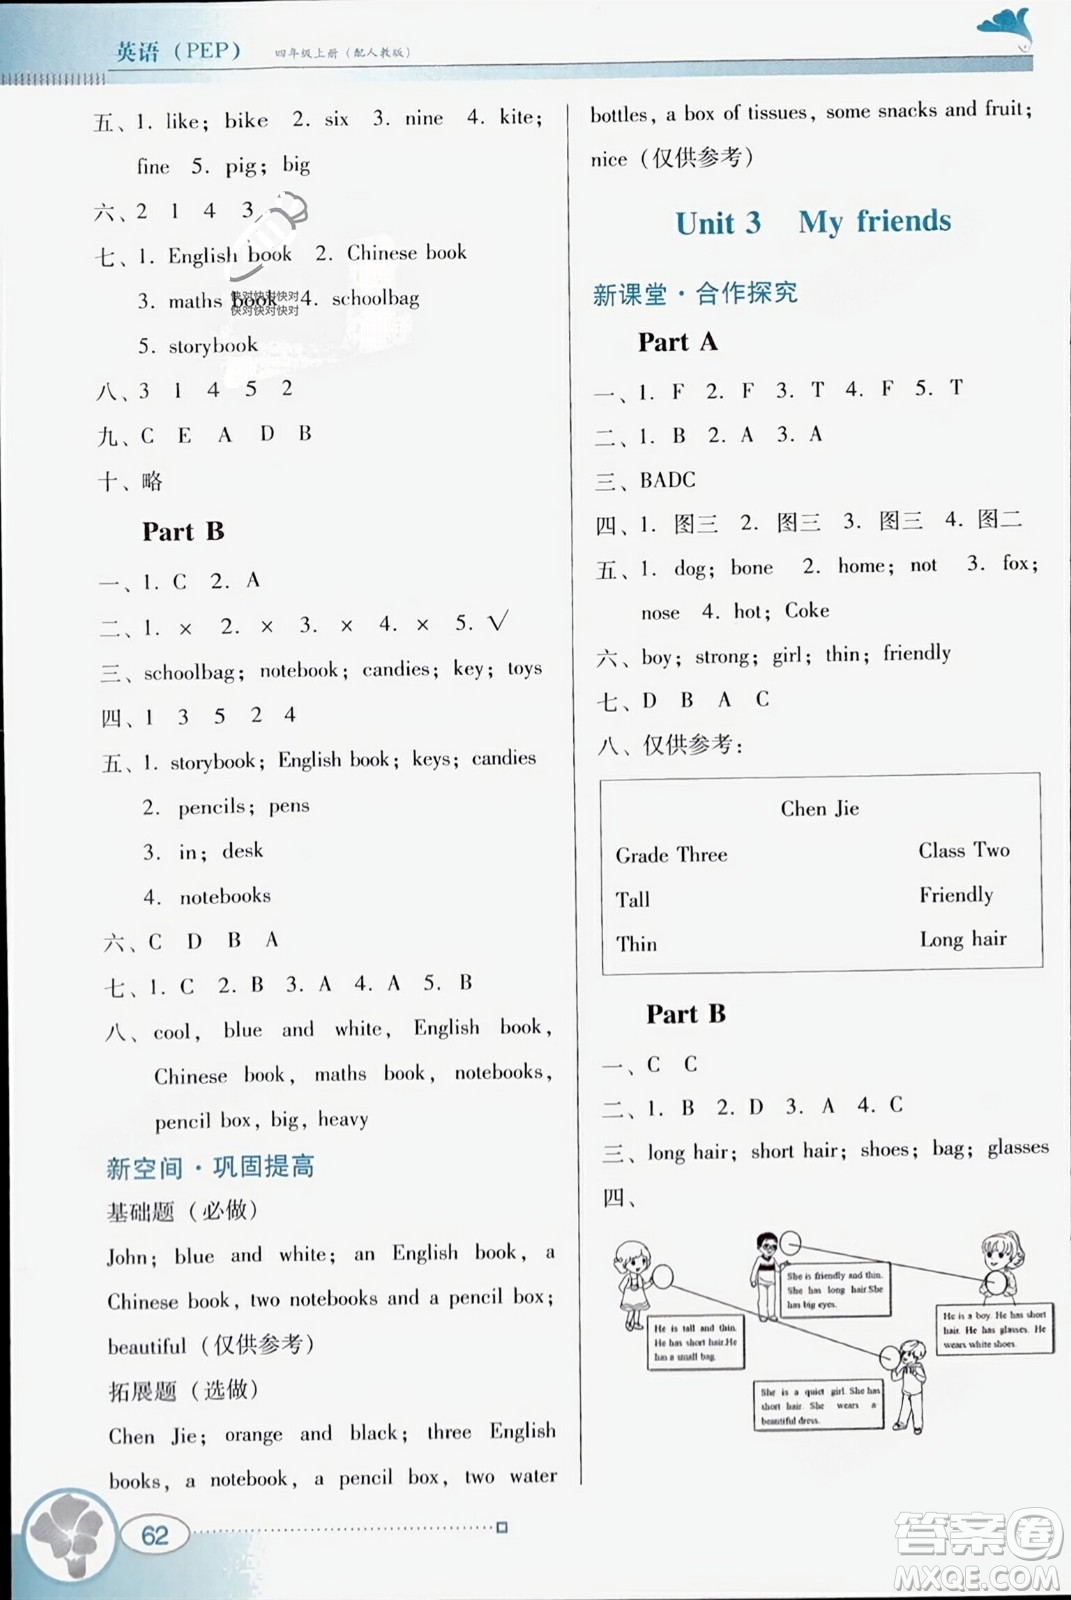 英语（PEP） 四年级上册（配人教版）
五、1. like; bike 2. six 3. nine 4. kite;
fine 5. pig; big
六、2 1 4 3
七、1. English book 2. Chinese book
3. maths book 4. schoolbag
快对快对快对
快对快对快对
5. storybook
八、3 1 4 5 2
九、C E A D B
十、略
Part B
一、1. C 2. A
二、1. × 2. × 3. × 4. × 5. √
三、schoolbag; notebook; candies; key; toys
四、1 3 5 2 4
五、1. storybook; English book; keys; candies
2. pencils; pens
3. in; desk
4. notebooks
六、C D B A
七、1. C 2. B 3. A 4. A 5. B
八、cool, blue and white, English book,
Chinese book, maths book, notebooks,
pencil box, big, heavy
新空间·巩固提高
基础题（必做）
John; blue and white; an English book, a
Chinese book, two notebooks and a pencil box;
beautiful（仅供参考）
拓展题（选做）
Chen Jie; orange and black; three English
books, a notebook, a pencil box, two water
62
bottles, a box of tissues, some snacks and fruit;
nice（仅供参考）
Unit 3 My friends
新课堂·合作探究
Part A
一、1. F 2. F 3. T 4. F 5. T
二、1. B 2. A 3. A
三、BADC
四、1. 图三 2. 图三 3. 图三 4. 图二
五、1. dog; bone 2. home; not 3. fox;
nose 4. hot; Coke
六、boy; strong; girl; thin; friendly
七、D B A C
八、仅供参考：
Chen Jie
Grade Three Class Two
Tall Friendly
Thin Long hair
Part B
一、C C
二、1. B 2. D 3. A 4. C
三、long hair; short hair; shoes; bag; glasses
四、
She is friendly and thin.
She has long hair.She
has big eyes.
He is a boy. He has short
hair. He has glasses. He
wears white shoes.
He is tall and thin.
He has short hair.He
has a small bag.
She is a quiet girl. She has
short hair. She wears a
beautiful dress.
答案卷
MXQE.COM